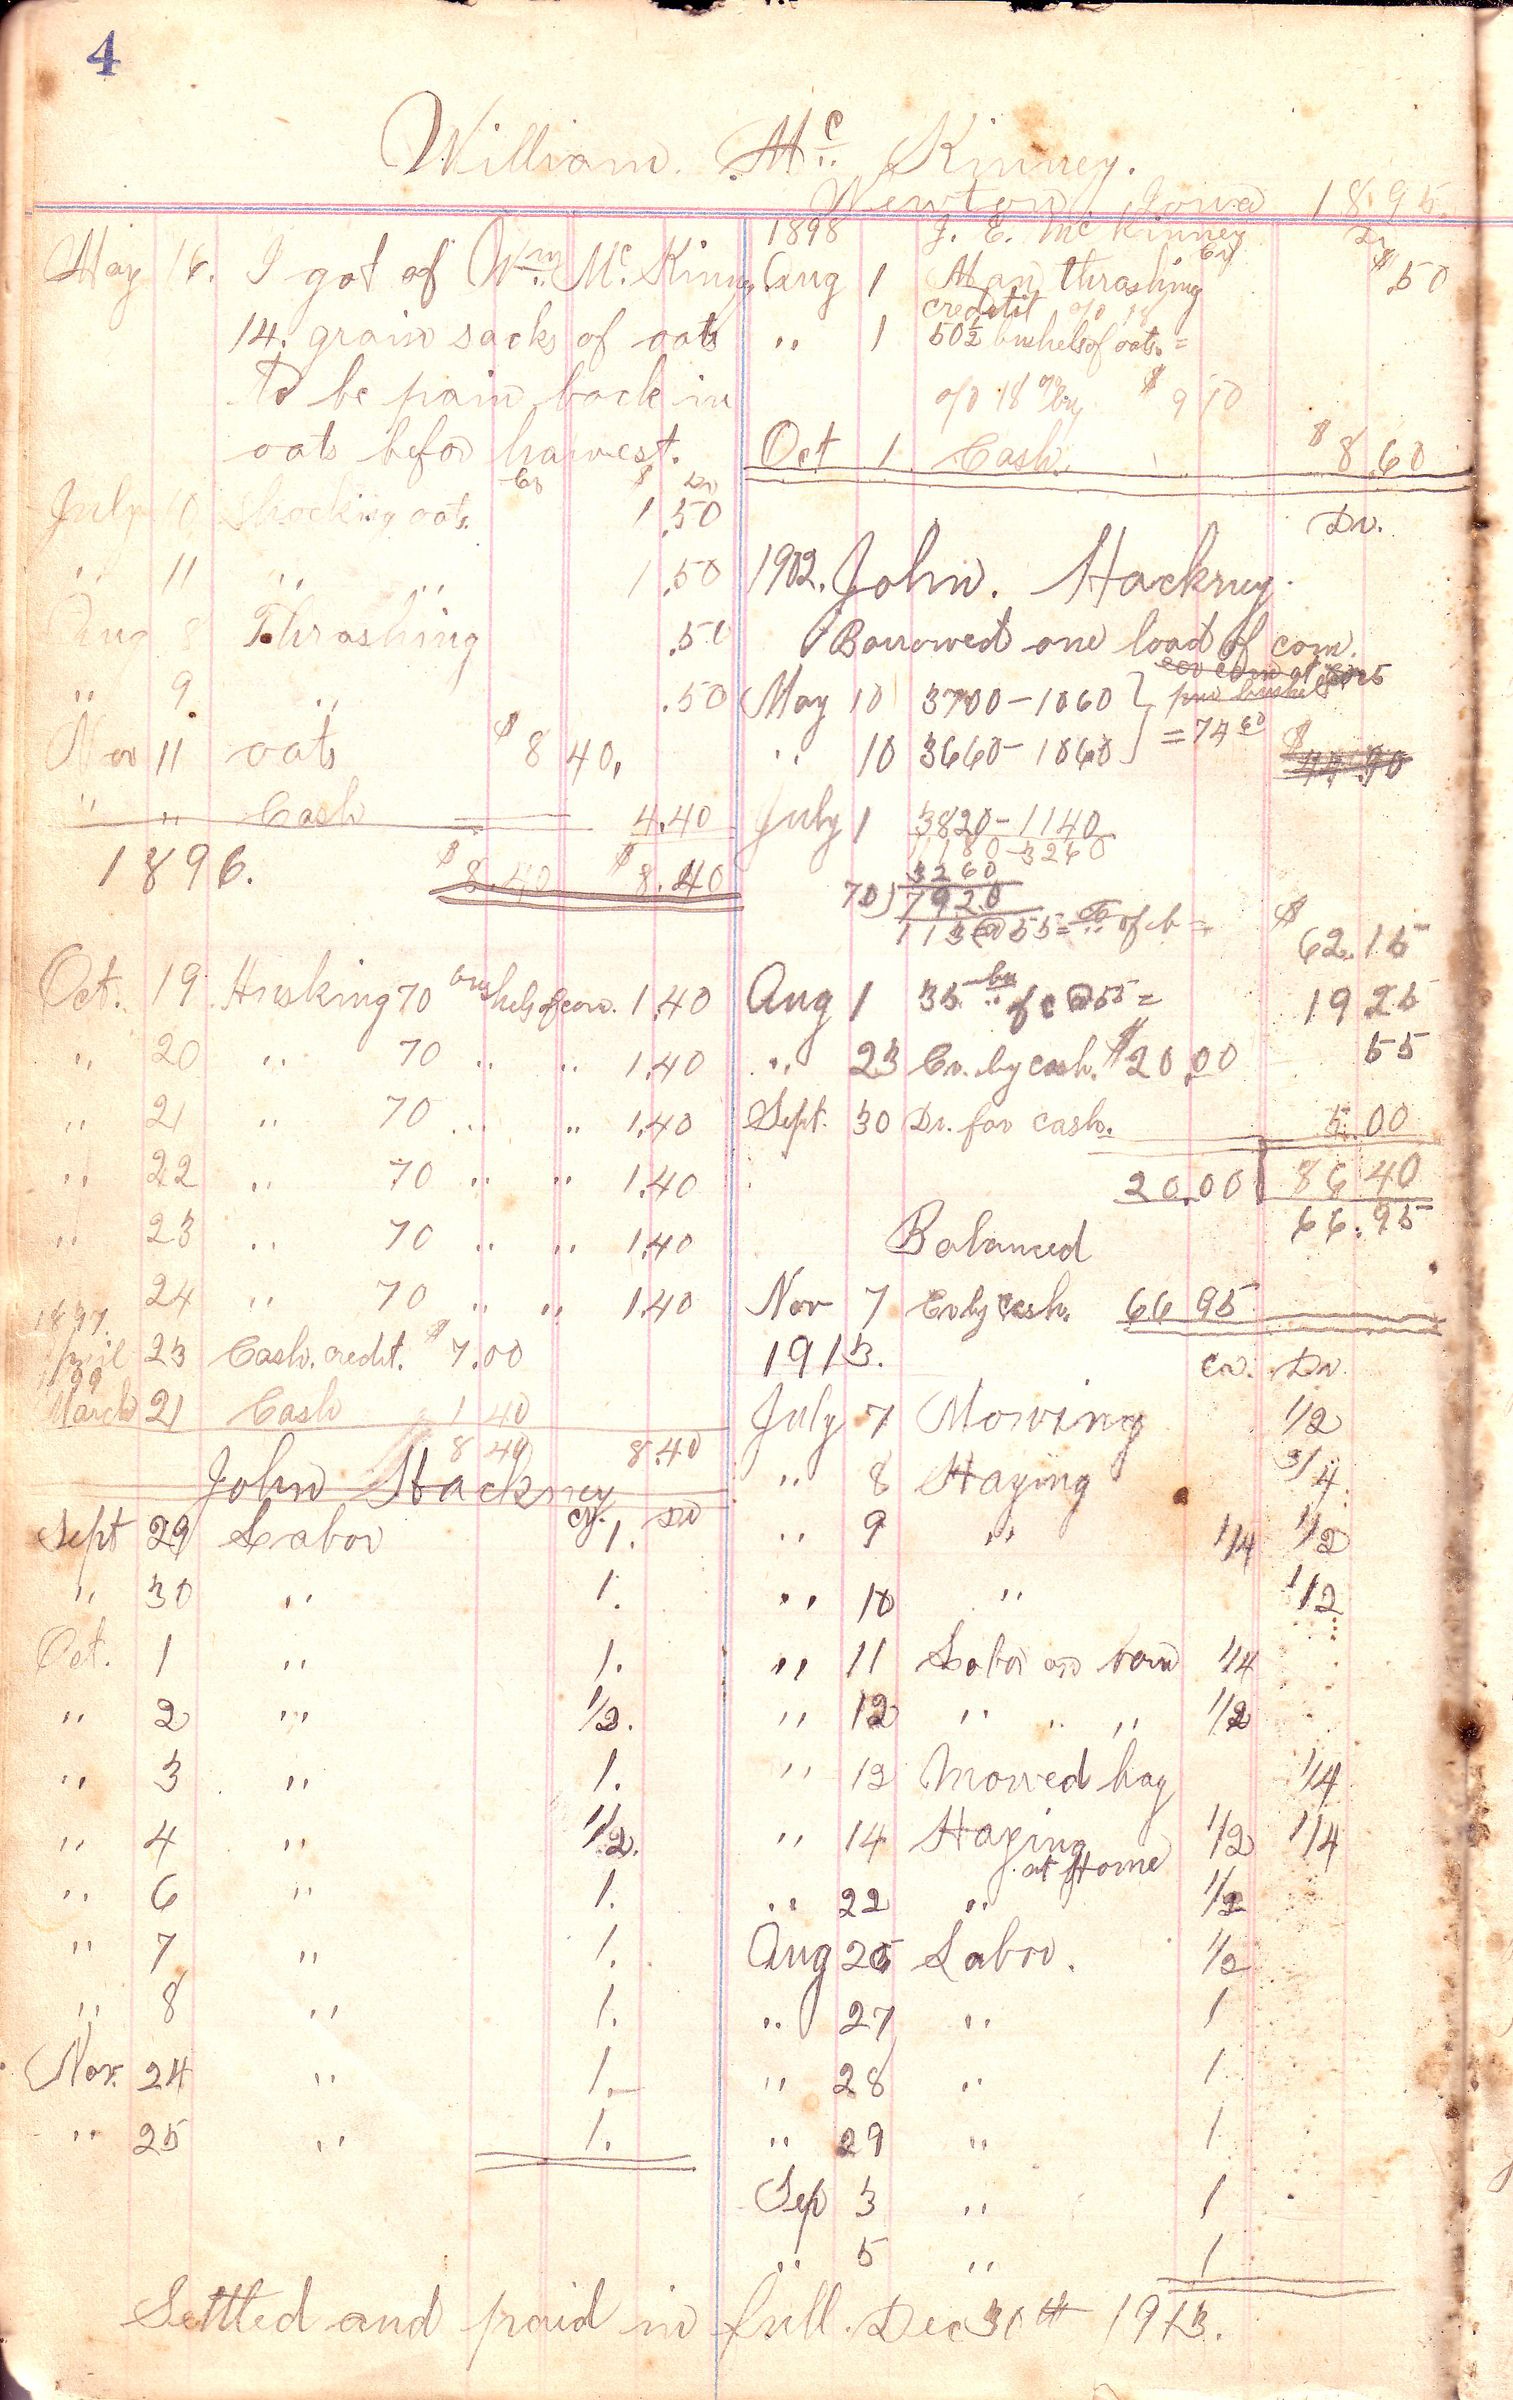 4
William. Mc Kinney.
Newton Iowa 1895.
May 16. I got of Wm. Mc. Kinney
14. grain sacks of oats
to be pain back in
oats befor harvest.
Cr $ Dr
July 10 Shocking oats. 1.50
" 11 " " 1.50
Aug 8 Thrashing .50
" 9 " .50
Nov 11 oats $8 40.
" " Cash 4.40
1896. $8.40 $8.40
Oct. 19. Husking 70 bushels of corn. 1.40
" 20 " 70 " " 1.40
" 21 " 70 " " 1.40
" 22 " 70 " " 1.40
" 23 " 70 " " 1.40
" 24 " 70 " " 1.40
1897.
April 23 Cash. credit. $7.00
March 21 Cash 1 40
8 40 8.40
John Hackney
Cr. Dr
Sept 29 Labor 1.
" 30 " 1.
Oct. 1 " 1.
" 2 " 1/2.
" 3 " 1.
" 4 " 1/2.
" 6 " 1.
" 7 " 1.
" 8 " 1.
Nov. 24 " 1.
" 25 " 1.
1898 J. E. McKinney Dr
Cr
Aug 1 Man thrashing $.50
creditit
" 1 50 1/2 bushels of oats. =
18 $9 10
Oct 1 Cash. $8.60
Dr.
1902. John. Hackney.
Borrowed one load of corn.
May 10 3700-1060
" 10 3660-1060 = 74
July 1 3820-1140
1180-3260
3260
70) 7920
113@55= of c = $62.15
Aug 1 35 bu of c @55 = 19 25
" 23 Cr. by cash. $20.00 55
Sept. 30 Dr. for cash. 5.00
20.00 86 40
66.95
Balanced
Nov 7 Cr by cash. 66 95
1913. Cr. Dr
July 7 Mowing 1/2
" 8 Haying 3/4
" 9 " 1/4 1/2
" 10 " 1/2
" 11 Labor on barn 1/4
" 12 " " " 1/2
" 12 Mowed hay 1/4
" 14 Haying 1/2 1/4
at Home
" 22 " 1/2
Aug 25 Labor. 1/2
" 27 " 1
" 28 " 1
" 29 " 1
Sep 3 " 1
" 5 " 1
Settled and paid in full. Dec 30th 1913.